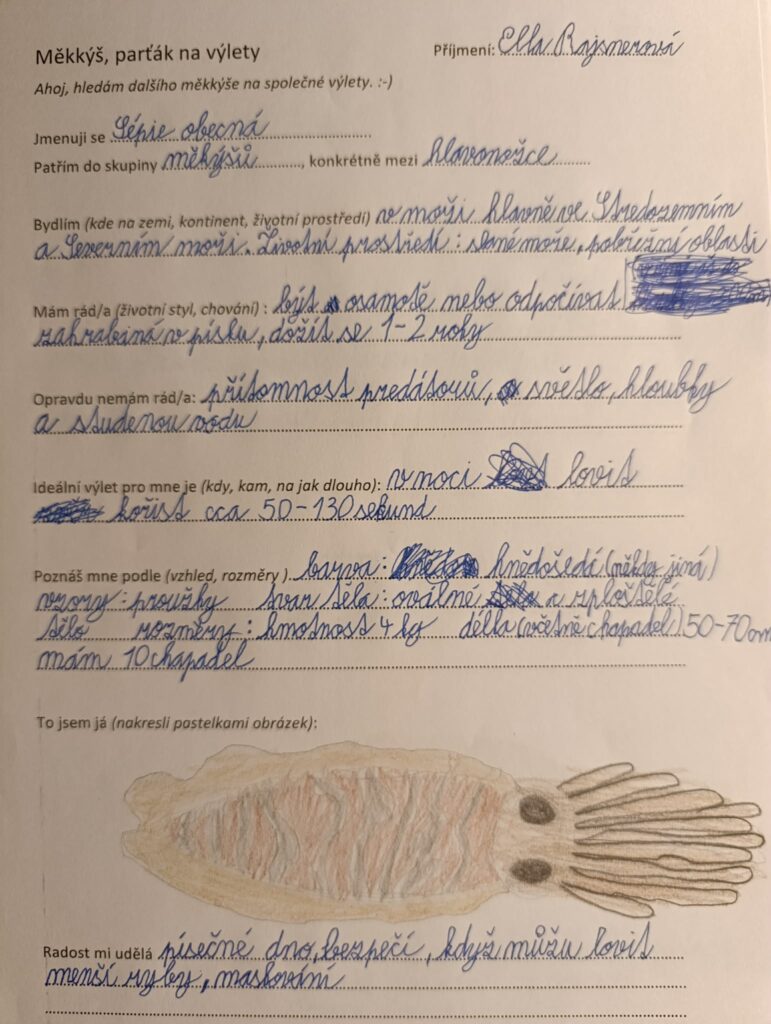 Měkkýš, parťák na výlety
Příjmení: Ella Rajsnerová
Ahoj, hledám dalšího měkkýše na společné výlety. :-)
Jmenuji se Sépie obecná
Patřím do skupiny měkýšů, konkrétně mezi hlavonožce
Bydlím (kde na zemi, kontinent, životní prostředí) v moři hlavně ve Středozemním
a Severním moři. Životní prostředí: slané moře, pobřežní oblasti
Mám rád/a (životní styl, chování) : být osamotě nebo odpočívat
zahrabaná v písku, dožít se 1-2 roky
Opravdu nemám rád/a: přítomnost predátorů, světlo, hloubky
a studenou vodu
Ideální výlet pro mne je (kdy, kam, na jak dlouho): v noci lovit
kořist cca 50-130 sekund
Poznáš mne podle (vzhled, rozměry ) barva: hnědošedá (někdy jiná)
vzory: proužky tvar těla: oválné a zploštělé
tělo rozměry: hmotnost 4 kg délka (včetně chapadel) 50-70 cm
mám 10 chapadel
To jsem já (nakresli pastelkami obrázek):
Radost mi udělá písečné dno, bezpečí, když můžu lovit
menší ryby, maskování